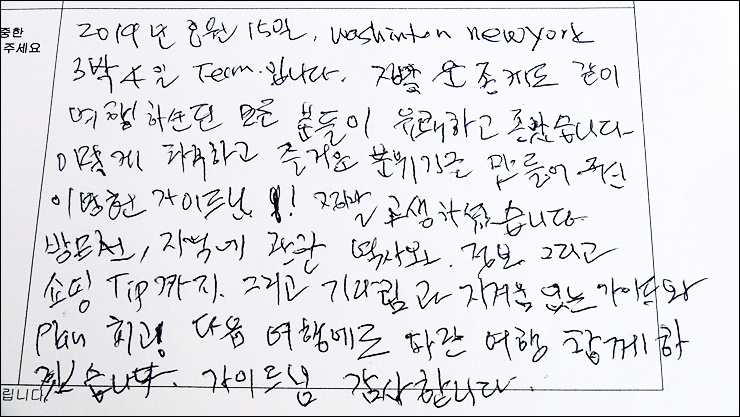 중한
주세요
2019년 8월 15일, washinton newyork
3박 4일 Team.입니다. 정말 운 좋게도 같이
여행하는 모든 분들이 유쾌하고 좋았습니다
이렇게 화목하고 즐거운 분위기를 만들어 주신
이병헌 가이드님 !! 정말 고생하셨습니다
방문전, 지역에 관한 역사와 정보 그리고
쇼핑 Tip까지. 그리고 기다림과 지겨움 없는 가이드와
Plan 최고! 다음 여행에도 파란 여행 함께 하
겠습니다. 가이드님 감사합니다.
립니다